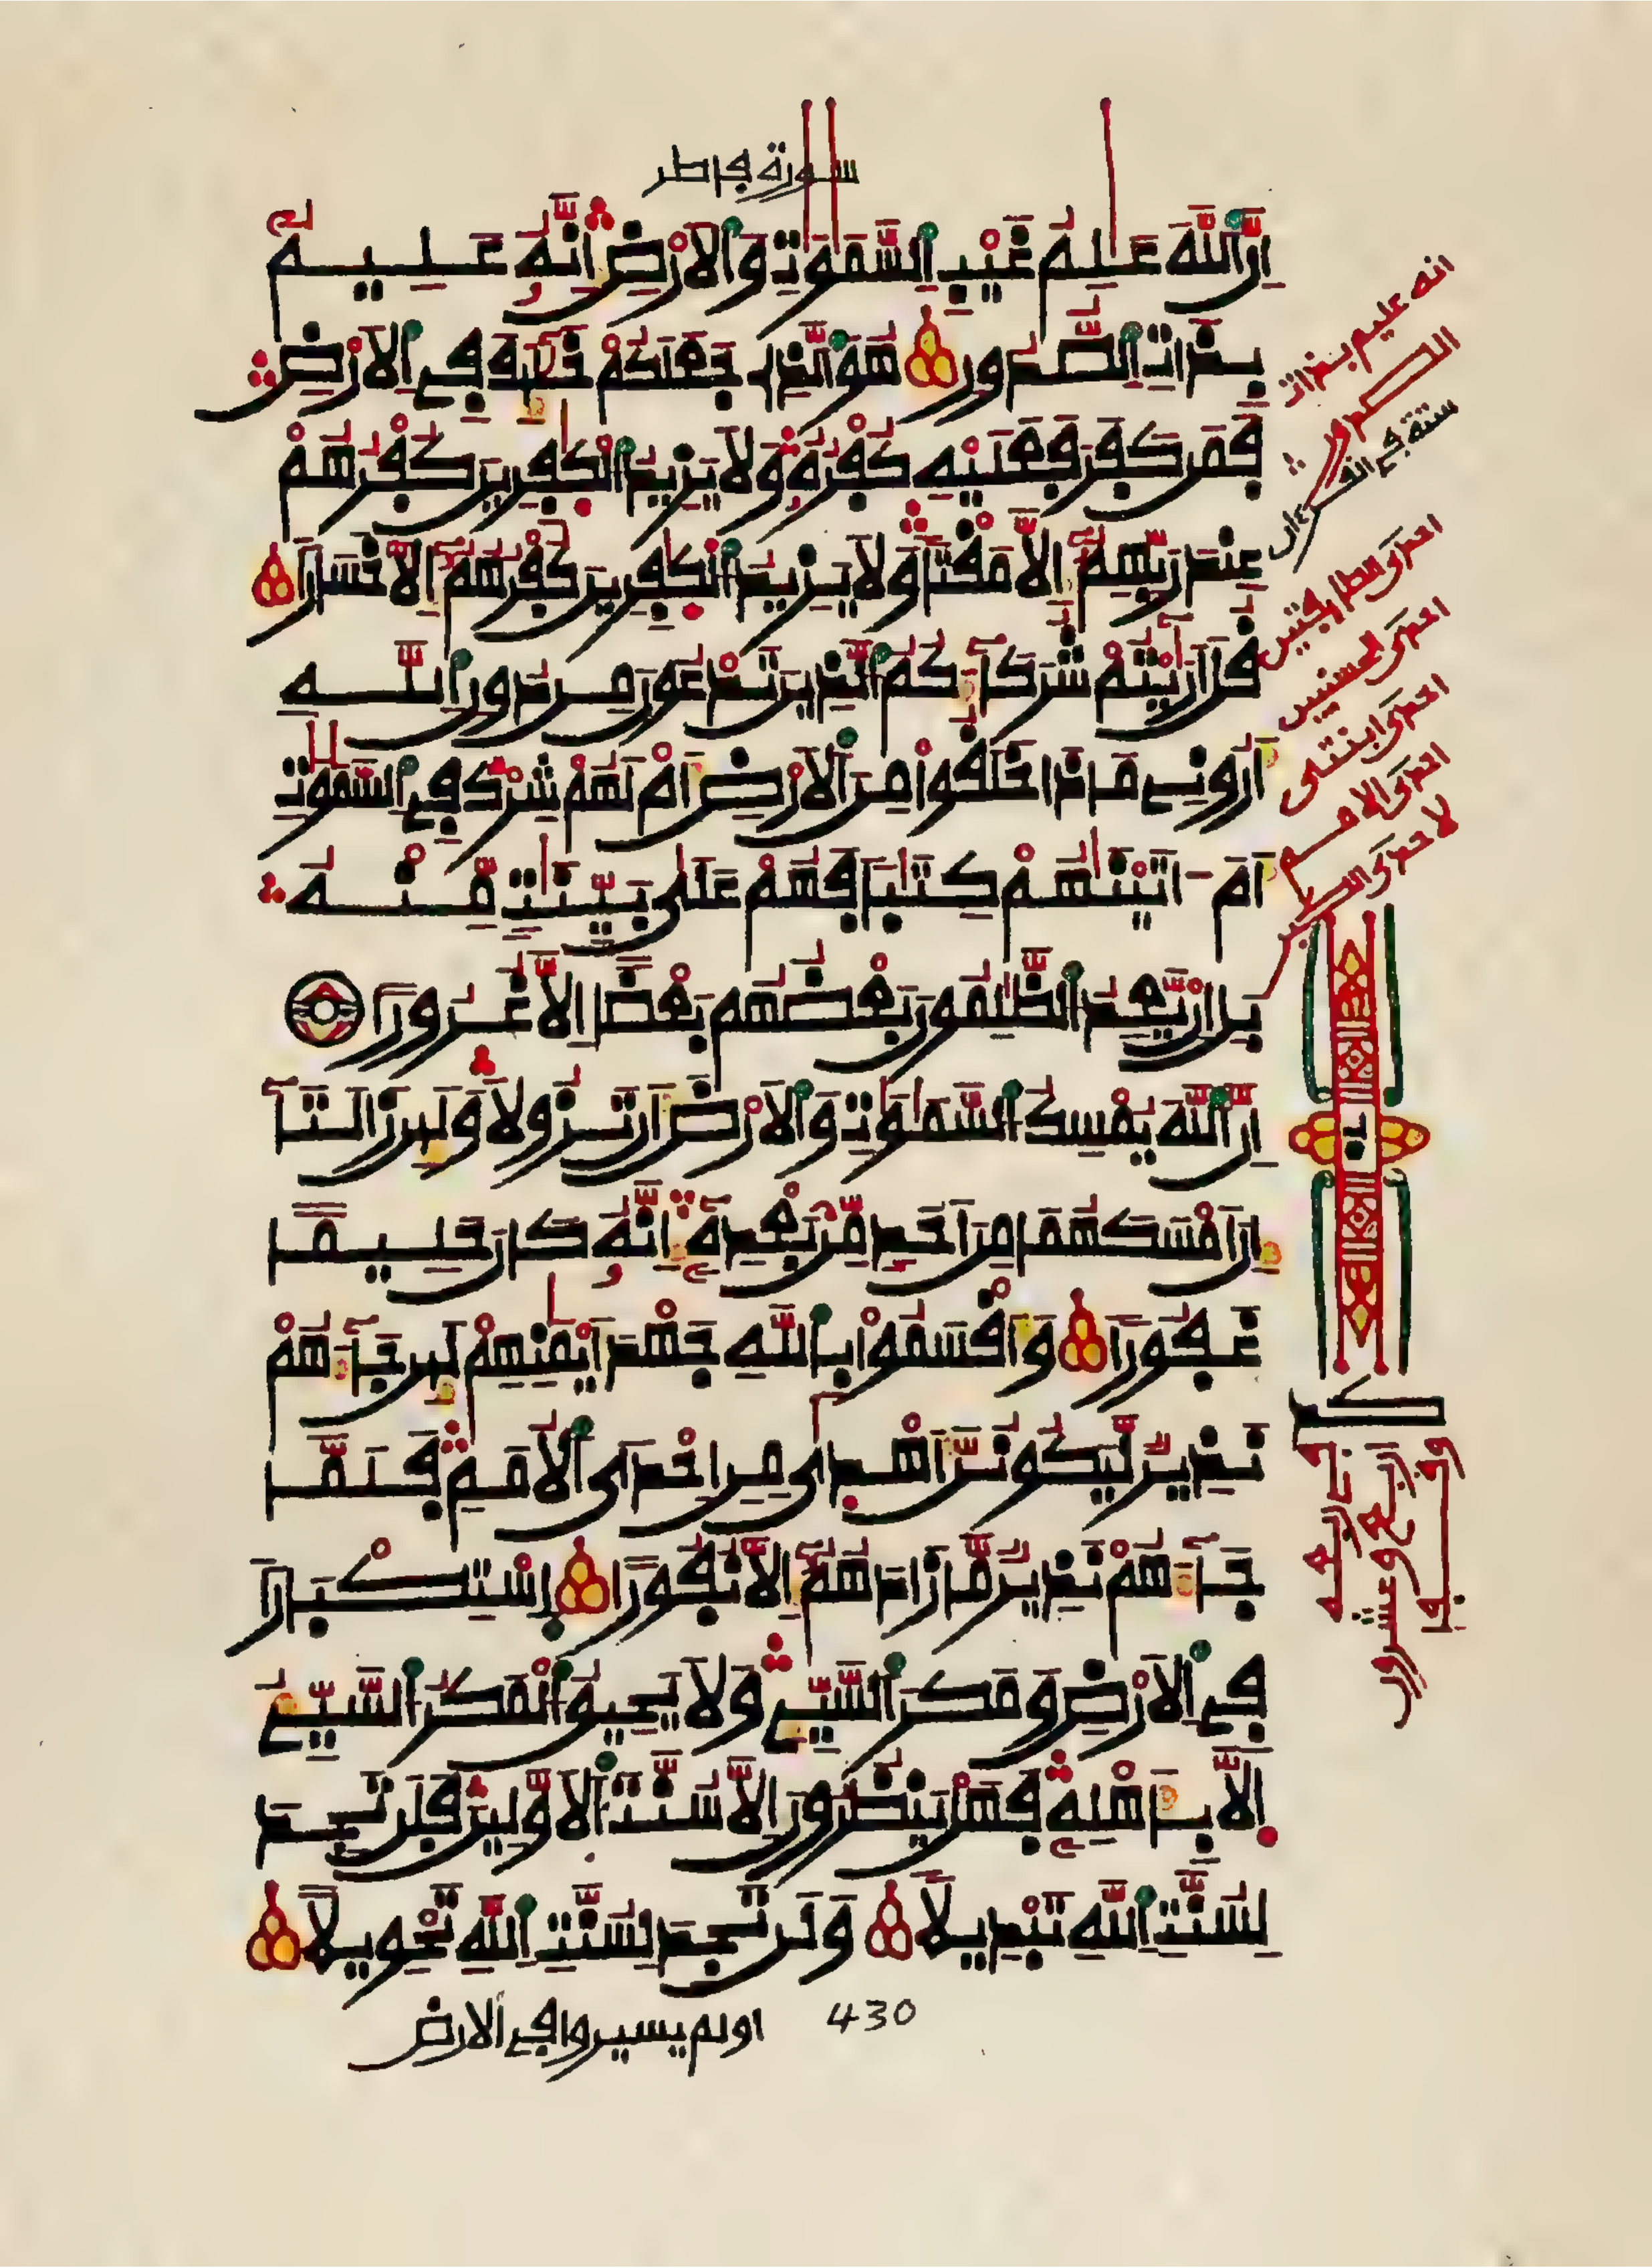 سورة فاطر
إِنَّ اَللَّهَ عَٰلِمُ غَيْبِ اِلسَّمَٰوَٰتِ وَالَارْضِ إِنَّهُۥ عَلِيمُۢ
بِذَاتِ اِلصُّدُورِ هُوَ اَلذِے جَعَلَكُمْ خَلَٰٓئِفَ فِے اِلَارْضِ
فَمَن كَفَرَ فَعَلَيْهِ كُفْرُهُۥ وَلَا يَزِيدُ اُلْكٰ۪فِرِينَ كُفْرُهُمْ
عِندَ رَبِّهِمُۥٓ إِلَّا مَقْتاٗ وَلَا يَزِيدُ اُلْكٰ۪فِرِينَ كُفْرُهُمُۥٓ إِلَّا خَسَاراٗ
قُلَ اَرَٰٓيْتُمْ شُرَكَآءَكُمُ اُلذِينَ تَدْعُونَ مِن دُونِ اِللَّهِ
أَرُونِے مَاذَا خَلَقُواْ مِنَ اَلَارْضِ أَمْ لَهُمْ شِرْكٞ فِے اِلسَّمَٰوَٰتِ
أَمَ اٰتَيْنَٰهُمْ كِتَٰباٗ فَهُمْ عَلَىٰ بَيِّنَٰتٖ مِّنْهُ
بَلِ اِنْ يَّعِدُ اُلظَّٰلِمُونَ بَعْضُهُم بَعْضاً اِلَّا غُرُوراً
إِنَّ اَللَّهَ يُمْسِكُ اُلسَّمَٰوَٰتِ وَالَارْضَ أَن تَزُولَا وَلَئِن زَالَتَآ
إِنَ اَمْسَكَهُمَا مِنَ اَحَدٖ مِّنۢ بَعْدِهِۦٓ إِنَّهُۥ كَانَ حَلِيماً
غَفُوراٗ وَأَقْسَمُواْ بِاللَّهِ جَهْدَ أَيْمَٰنِهِمْ لَئِن جَآءَهُمْ
نَذِيرٞ لَّيَكُونُنَّ أَهْد۪ىٰ مِنِ اِحْدَى اَلُامَمِ فَلَمَّا
جَآءَهُمْ نَذِيرٞ مَّا زَادَهُمُۥٓ إِلَّا نُفُوراً اِسْتِكْبَاراٗ
فِے اِلَارْضِ وَمَكْرَ اَلسَّيِّےِٕ وَلَا يَحِيقُ اُلْمَكْرُ اُلسَّيِّئُ
إِلَّا بِأَهْلِهِۦ فَهَلْ يَنظُرُونَ إِلَّا سُنَّتَ اَلَاوَّلِينَ فَلَن تَجِدَ
لِسُنَّتِ اِللَّهِ تَبْدِيلاٗ وَلَن تَجِدَ لِسُنَّتِ اِللَّهِ تَحْوِيلاً
430
اولم يسيروا في الارض
انه عليم بذات
الصدور
ستة في القرءان